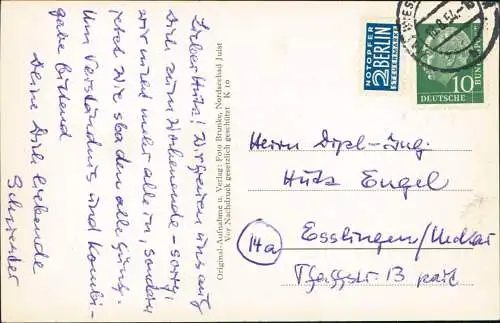 Lieber Hutz! Wir freuen uns auf
Dich zum Wochenende – sorry,
wir sind mehr alle in, sondern
jetzt Wiesbaden alle
Um Verständnis und Kombi-
gabe bittend
Deine Dich liebende
Schwester
Original-Aufnahme u. Verlag: Foto Brunke, Nordseebad Juist
Vor Nachdruck gesetzlich geschützt K 10
NOTOPFER
2 BERLIN
STEUERMARKE
10
DEUTSCHE
BUNDESPOST
Herrn Dipl.-Ing.
Hutz Engel
14a
Esslingen/Neckar
13 part